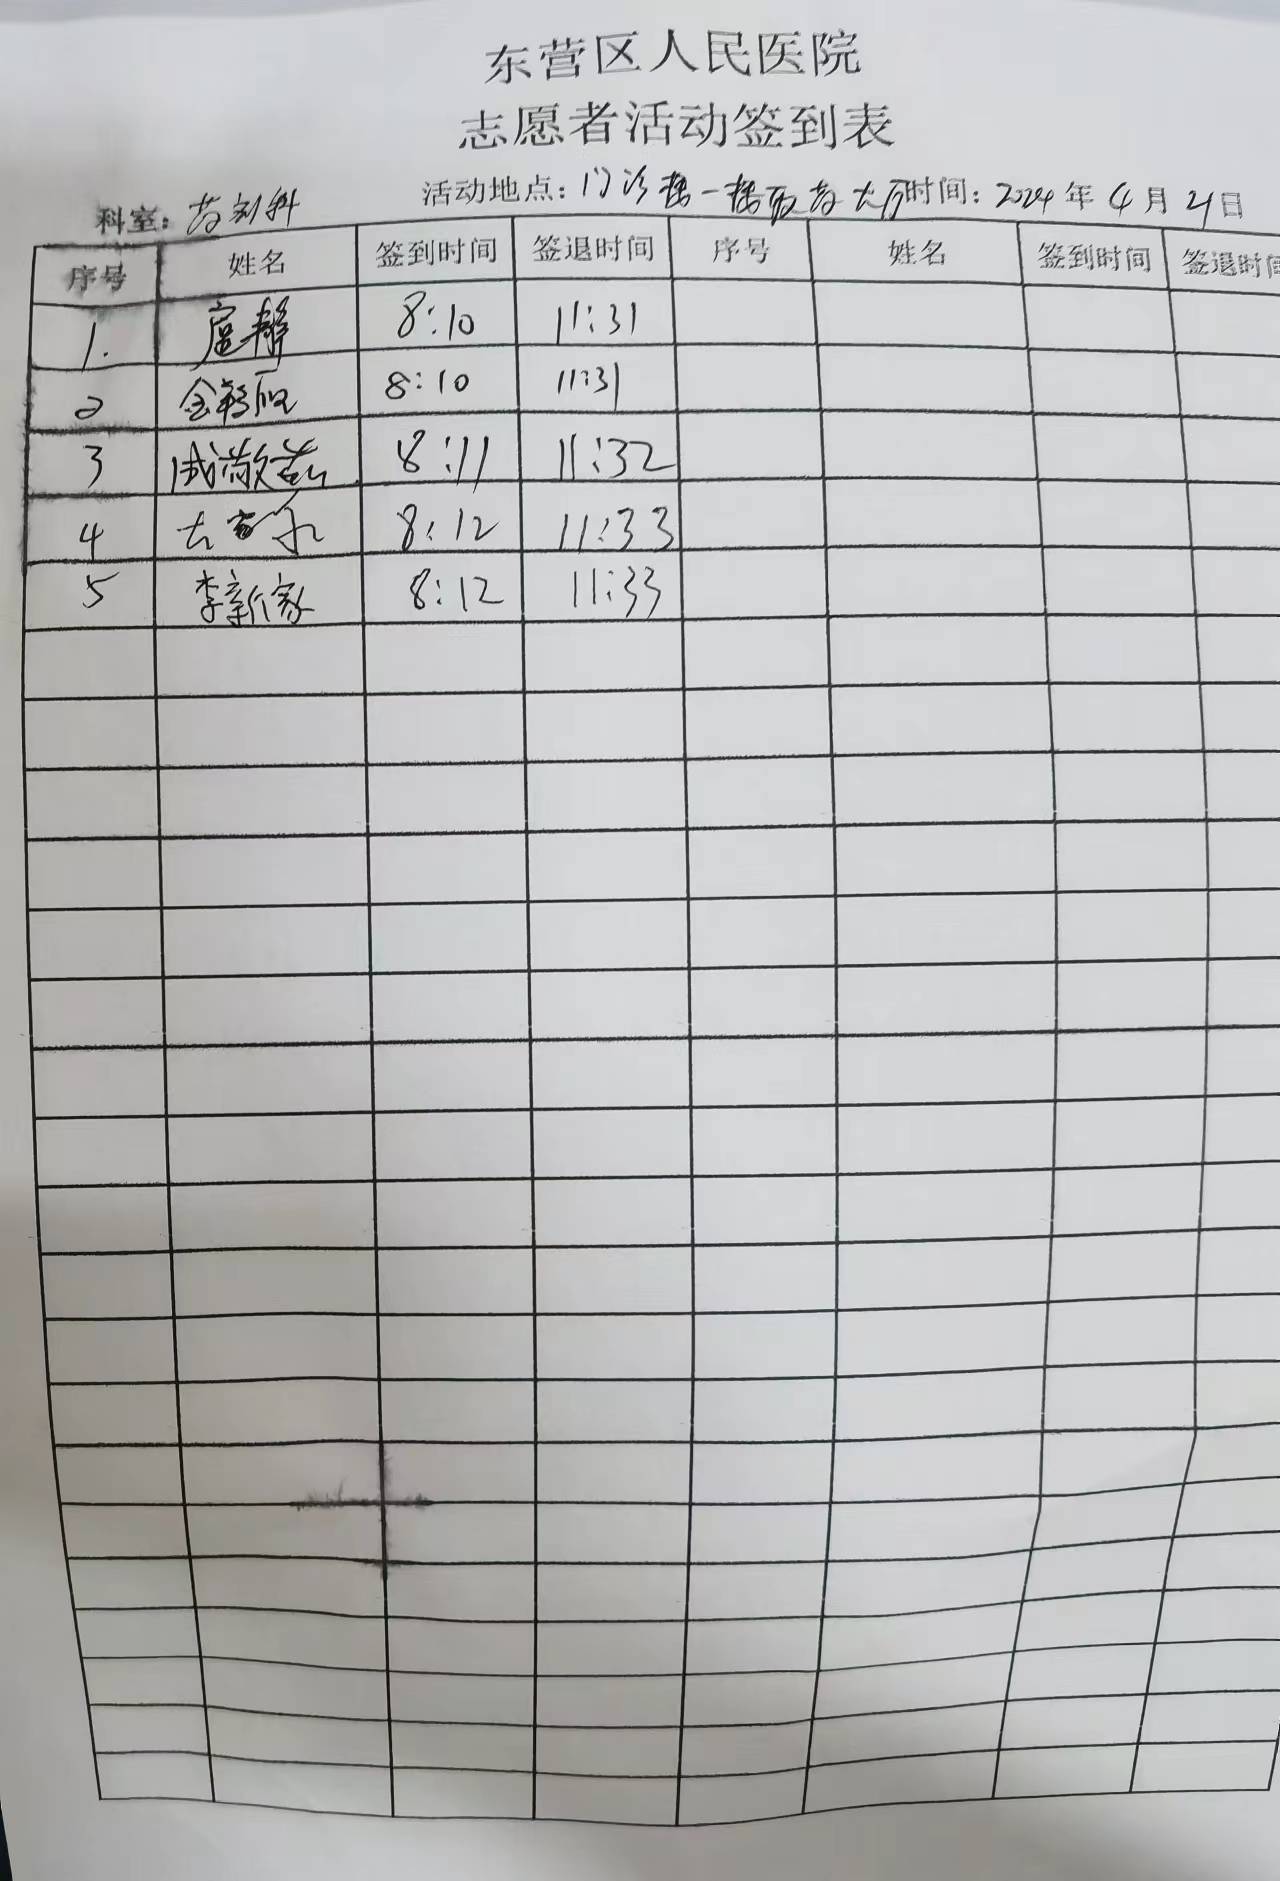 东营区人民医院
志愿者活动签到表
科室：药剂科 活动地点：门诊楼一楼取药大厅 时间：2024年4月21日
序号 姓名 签到时间 签退时间 序号 姓名 签到时间 签退时间
1. 8:10 11:31
2 8:10 11:31
3 8:11 11:32
4 8:12 11:33
5 李新家 8:12 11:33